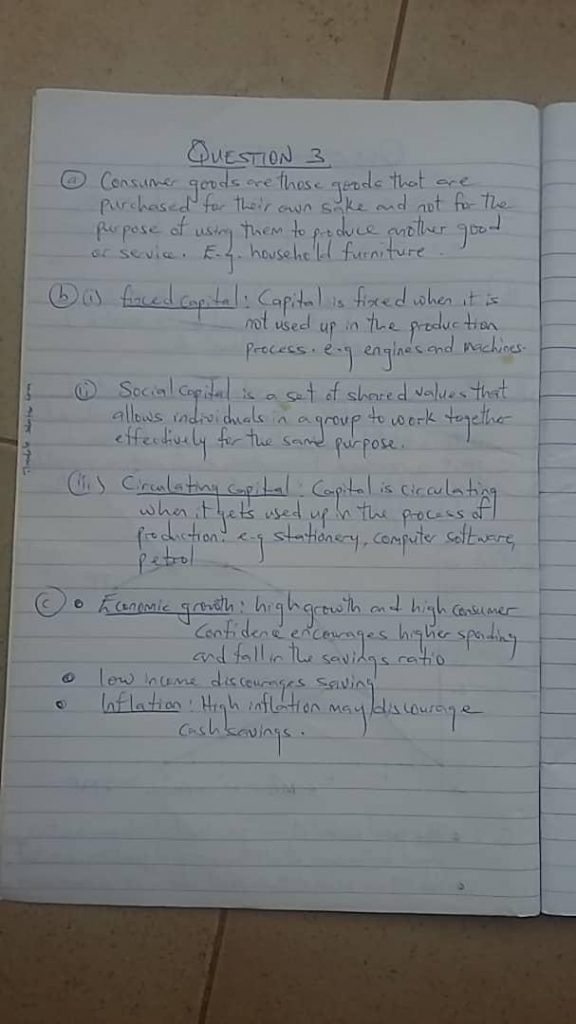 QUESTION 3
(a) Consumer goods are those goods that are
purchased for their own sake and not for the
purpose of using them to produce another good
or service. E.g. household furniture.
(b) (i) fixed capital: Capital is fixed when it is
not used up in the production
process. e.g engines and machines.
(ii) Social Capital is a set of shared values that
allows individuals in a group to work together
effectively for the same purpose.
(iii) Circulating capital: Capital is circulating
when it gets used up in the process of
production. e.g stationery, computer software,
petrol
(c) • Economic growth: high growth and high consumer
Confidence encourages higher spending
and fall in the savings ratio
• low income discourages saving
• Inflation: High inflation may discourage
Cash savings.